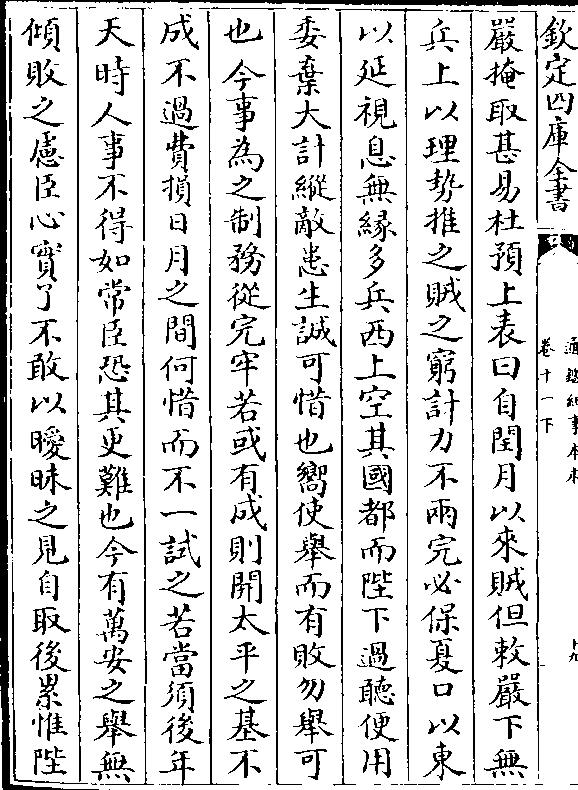 欽定四庫全書
通鑑紀事本末
卷十一下
嚴掩取甚易杜預上表曰自閏月以來賊但敕嚴下無
兵上以理勢推之賊之窮計力不兩完必保夏口以東
以延視息無緣多兵西上空其國都而陛下過聽便用
委棄大計縱敵患生誠可惜也嚮使舉而有敗勿舉可
也今事為之制務從完牢若或有成則開太平之基不
成不過費損日月之間何惜而不一試之若當須後年
天時人事不得如常臣恐其更難也今有萬安之舉無
傾敗之慮臣心實了不敢以曖昧之見自取後累惟陛